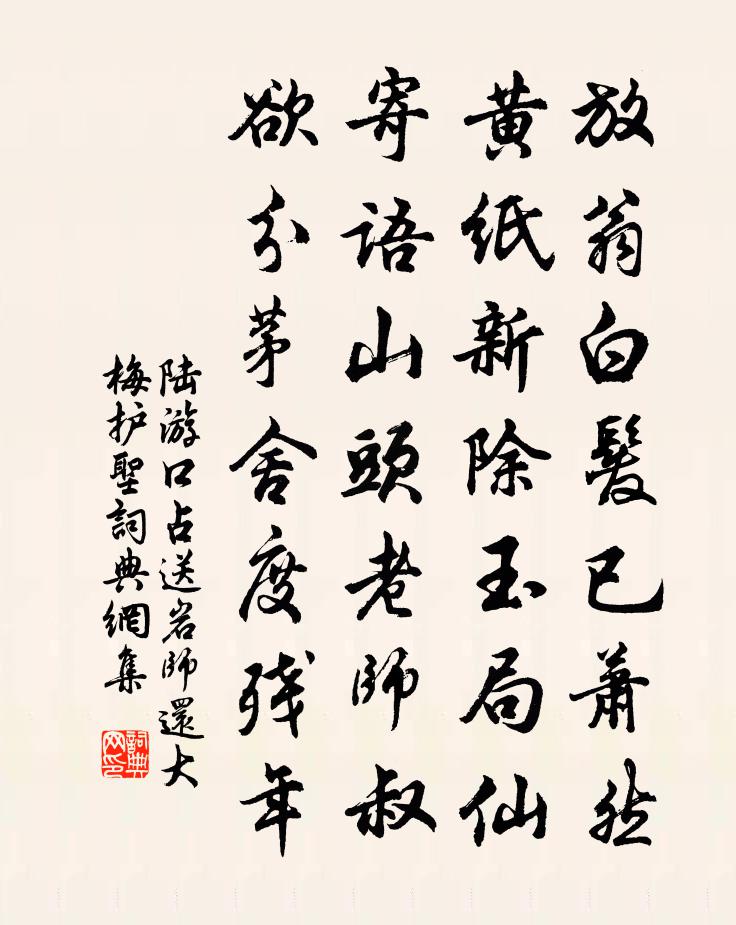 放翁白髮已蕭然
黄紙新除玉局仙
寄語山頭老師叔
欲分茅舍度残年
陆游口占送岩师還大
梅护聖詞典網集
詞典
网印